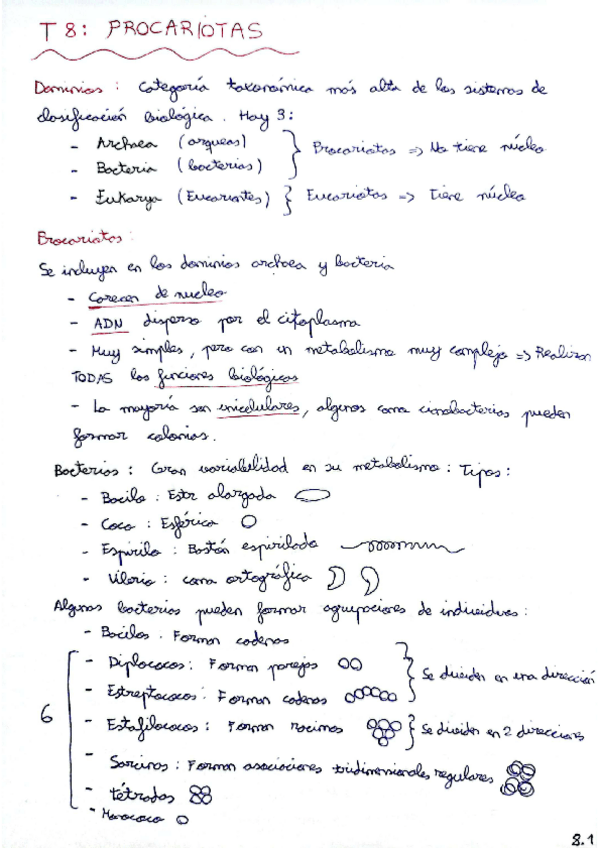 T 8: PROCARIOTAS
Dominios : Categoría taxonómica más alta de los sistemas de
clasificación biológica. Hay 3:
- Archaea (arqueas)
- Bacteria (bacterias)
} Procariotas => No tiene núcleo
- Eukarya (Eucariontes) } Eucariotas -> Tiene núcleo
Procariotas:
Se incluyen en los dominios archaea y bacteria
- Carecen de nucleo
- ADN disperso por el citoplasma
- Muy simples, pero con un metabolismo muy complejo => Realizan
TODAS las funciones biológicas
- La mayoría son unicelulares, algunos como cianobacterias pueden
formar colonias.
Bacterias : Gran variabilidad en su metabolismo : Tipos :
- Bacilo : Estr alargada
- Coco : Esférica
- Espirilo : Bastón espirilado
- Vibrio : coma ortográfica
Algunas bacterias pueden formar agrupaciones de individuos:
- Bacilos. Forman cadenas
- Diplococos: Forman parejas
- Estreptococos: Forman cadenas
} Se dividen en una dirección
6
- Estafilococos : Forman racimos } Se dividen en 2 direcciones
- Sarcinas : Forman asociaciones tridimensionales regulares
- tétradas
- Monococo
8.1